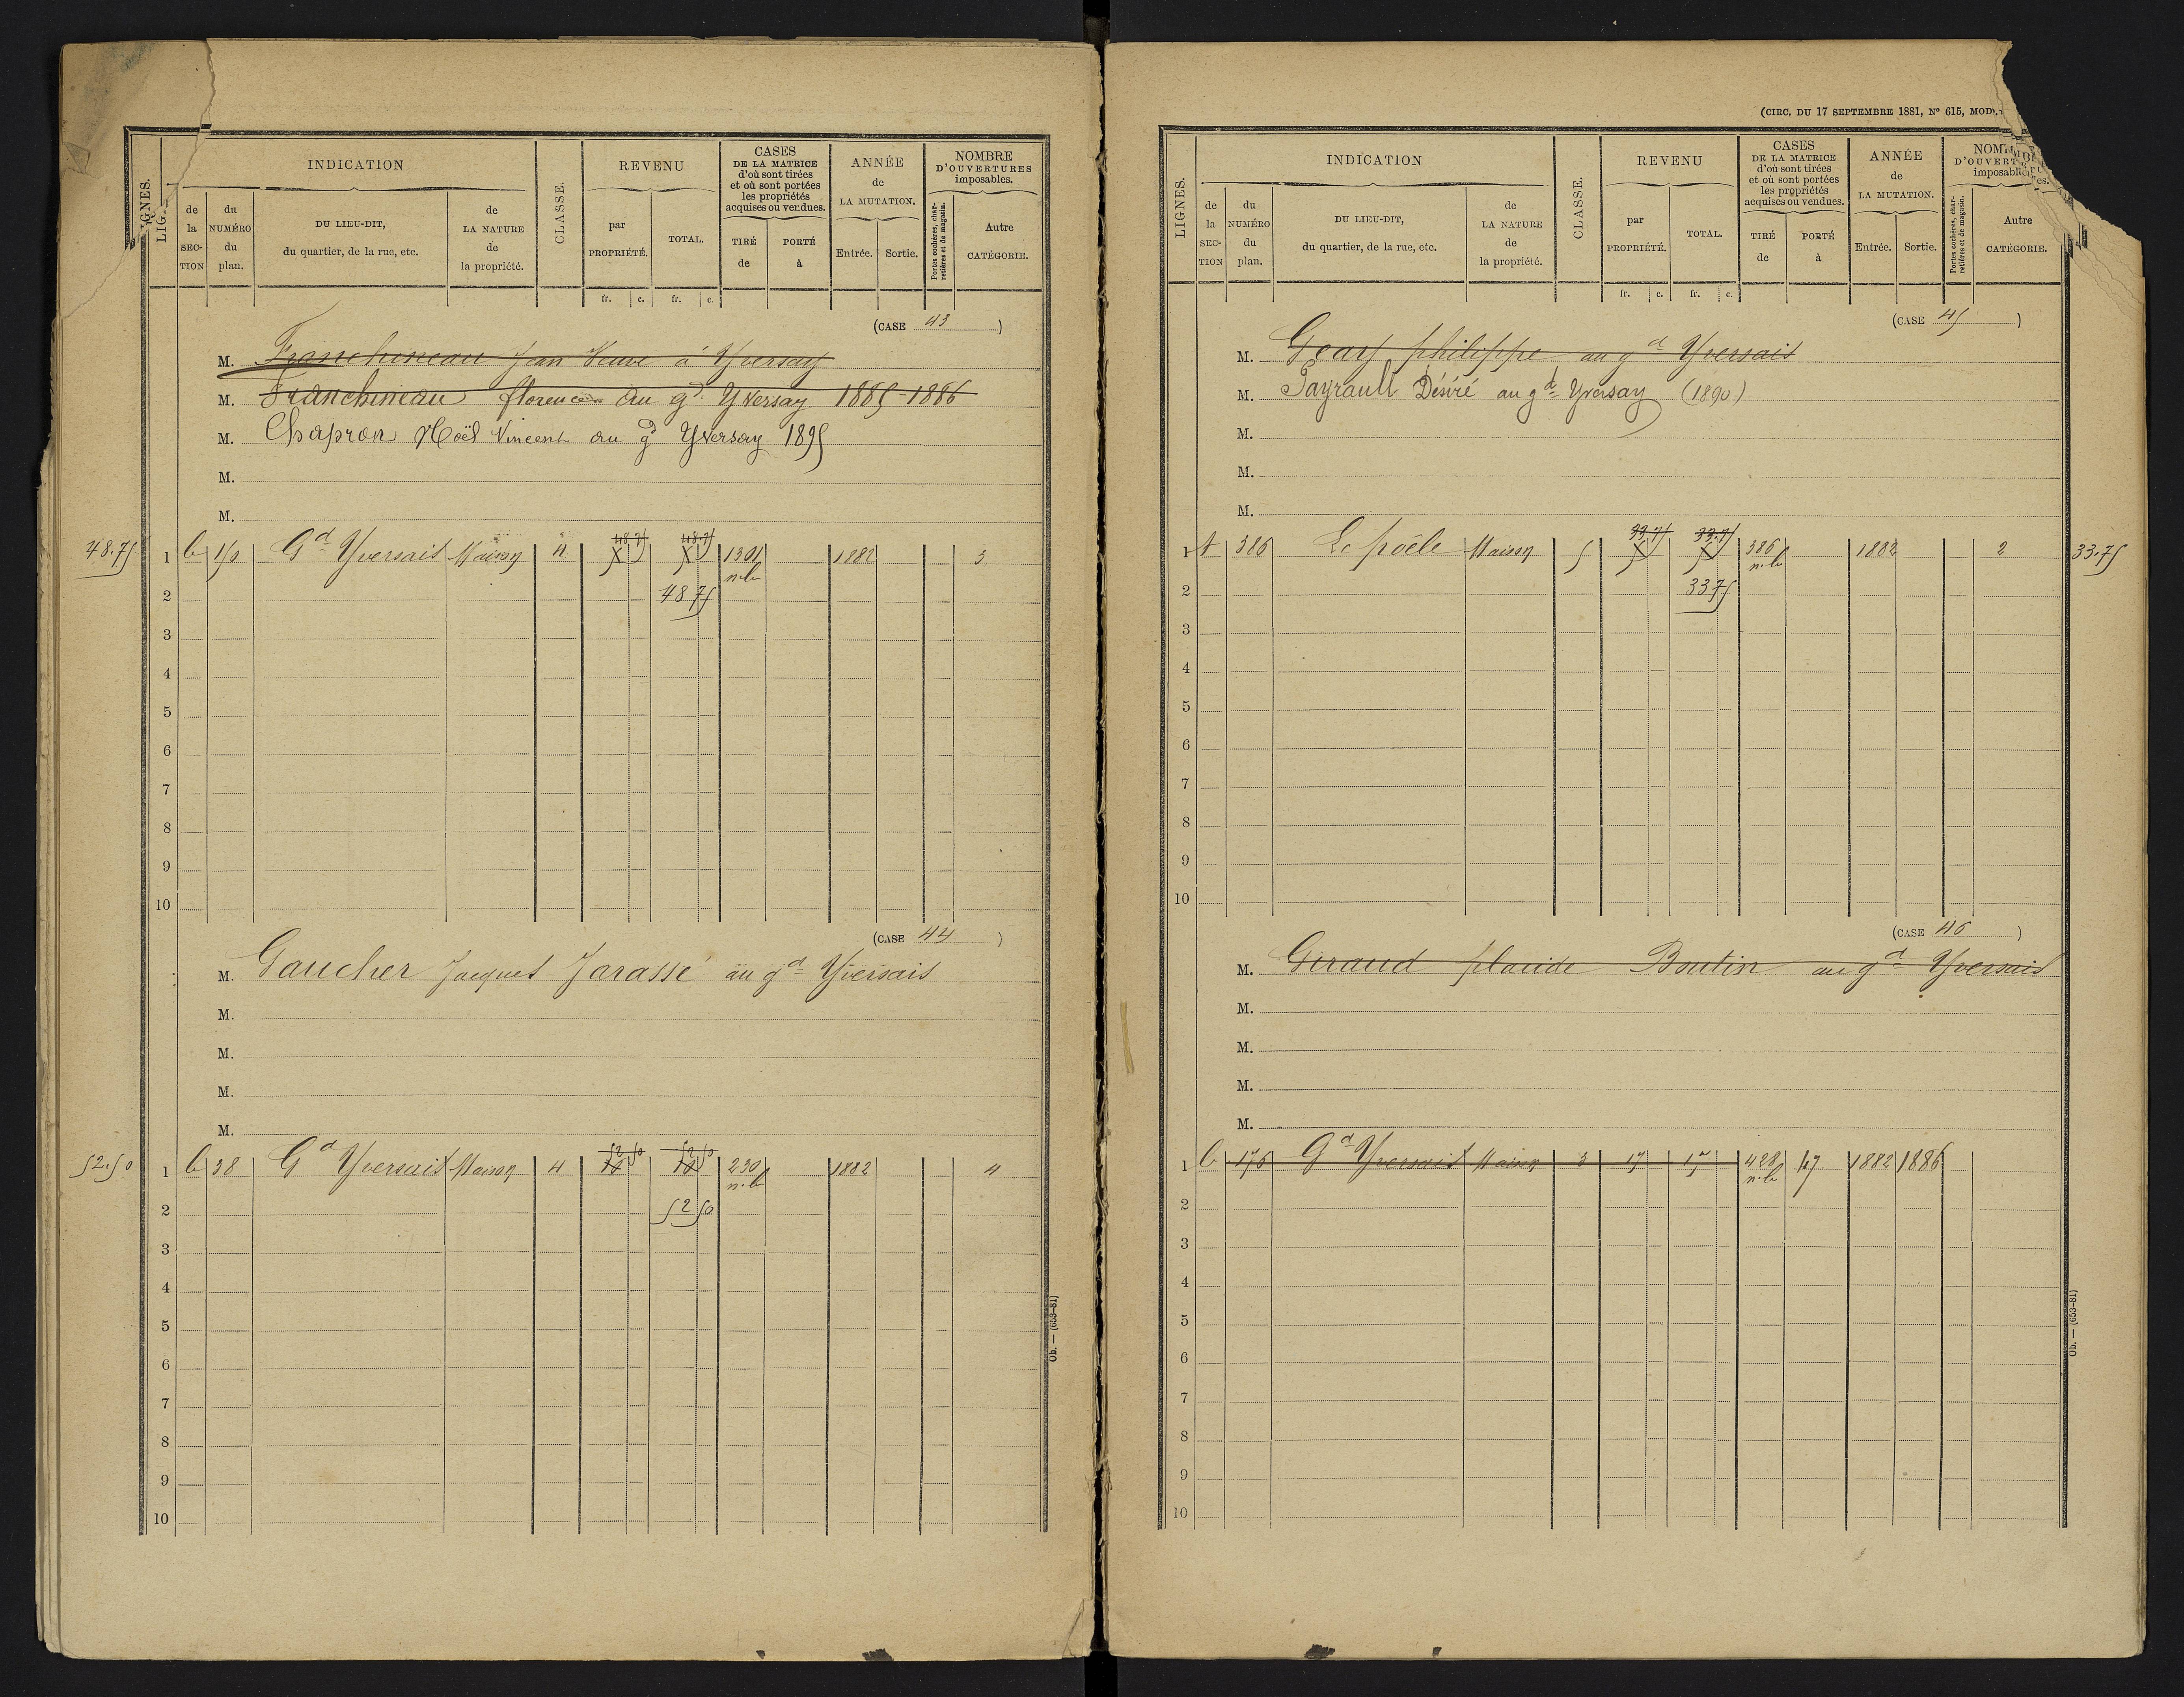 LIGNES.
INDICATION
de la SECTION
du NUMÉRO du plan.
DU LIEU-DIT, du quartier, de la rue, etc.
de LA NATURE de la propriété.
CLASSE.
REVENU
par PROPRIÉTÉ.
TOTAL.
fr. c. fr. c.
CASES DE LA MATRICE d'où sont tirées et où sont portées les propriétés acquises ou vendues.
TIRÉ de
PORTÉ à
ANNÉE de LA MUTATION.
Entrée. Sortie.
NOMBRE D'OUVERTURES imposables.
Portes cochères, charretières et de magasin.
Autre CATÉGORIE.
(CASE 43)
M. Franchineau Jean Veuve à Yversay
M. Franchineau florence au gd Yversay 1885-1886
M. Chapron Noël Vincent au gd Yversay 1895
M.
M.
48.75 1 b 150 Gd Yversais Maison 4 48.75 48.75 1301 1882 3
n.b
2 48 75
3
4
5
6
7
8
9
10
(CASE 44)
M. Gaucher Jacques Jarassé au gd Yversais
M.
M.
M.
M.
52.50 1 b 38 Gd Yversais Maison 4 52 50 52 50 230 1882 4
n.b
2 52 50
3
4
5
6
7
8
9
10
Ob. — (653-81)
(CIRC. DU 17 SEPTEMBRE 1881, N° 615, MOD
LIGNES.
INDICATION
de la SECTION
du NUMÉRO du plan.
DU LIEU-DIT, du quartier, de la rue, etc.
de LA NATURE de la propriété.
CLASSE.
REVENU
par PROPRIÉTÉ.
TOTAL.
fr. c. fr. c.
CASES DE LA MATRICE d'où sont tirées et où sont portées les propriétés acquises ou vendues.
TIRÉ de
PORTÉ à
ANNÉE de LA MUTATION.
Entrée. Sortie.
D'OUVERT
Portes cochères, charretières et de magasin.
Autre CATÉGORIE.
(CASE 45)
M. Geay philippe au gd Yversais
M. Payrault Désiré au gd Yversay (1890)
M.
M.
M.
1 A 386 Le poële Maison 5 33.75 33.75 386 1882 2 33.75
n.b
2 33 75
3
4
5
6
7
8
9
10
(CASE 46)
M. Giraud placide Boutin au gd Yversais
M.
M.
M.
M.
1 b 176 Gd Yversais Maison 3 17 17 428 1882 1886
n.b
2
3
4
5
6
7
8
9
10
Ob. — (653-81)